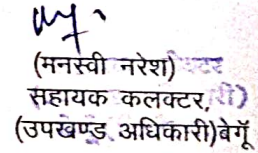 (मनस्वी नरेश)
सहायक कलक्टर,
(उपखण्ड अधिकारी)बेगूॅं